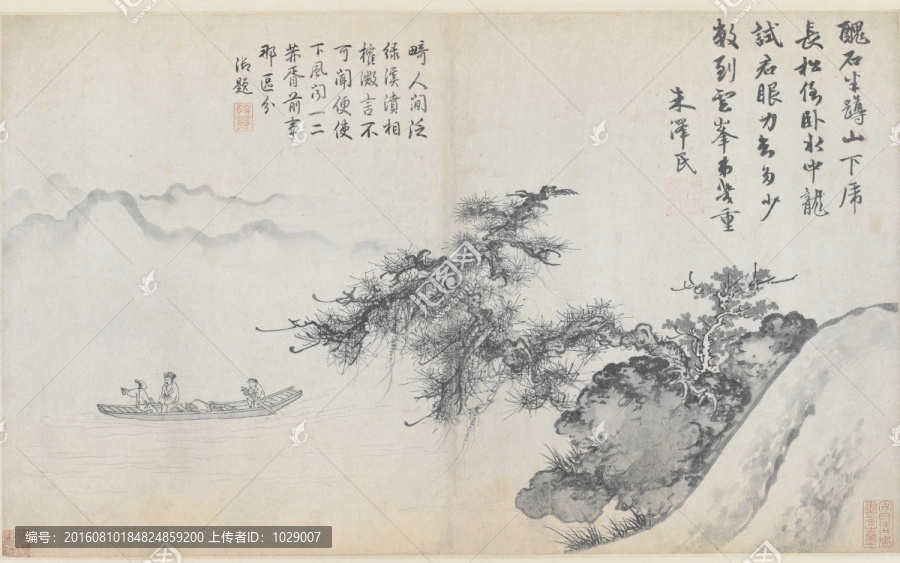 醜石半蹲山下虎
長松倒卧水中龍
試君眼力知多少
數到雲峯第幾重
朱澤民
畸人閒泛
緑溪濆相
榷微言不
可聞便使
下風問一二
華胥前事
那區分
題
汇图网
编号：20160810184824859200 上传者ID：1029007